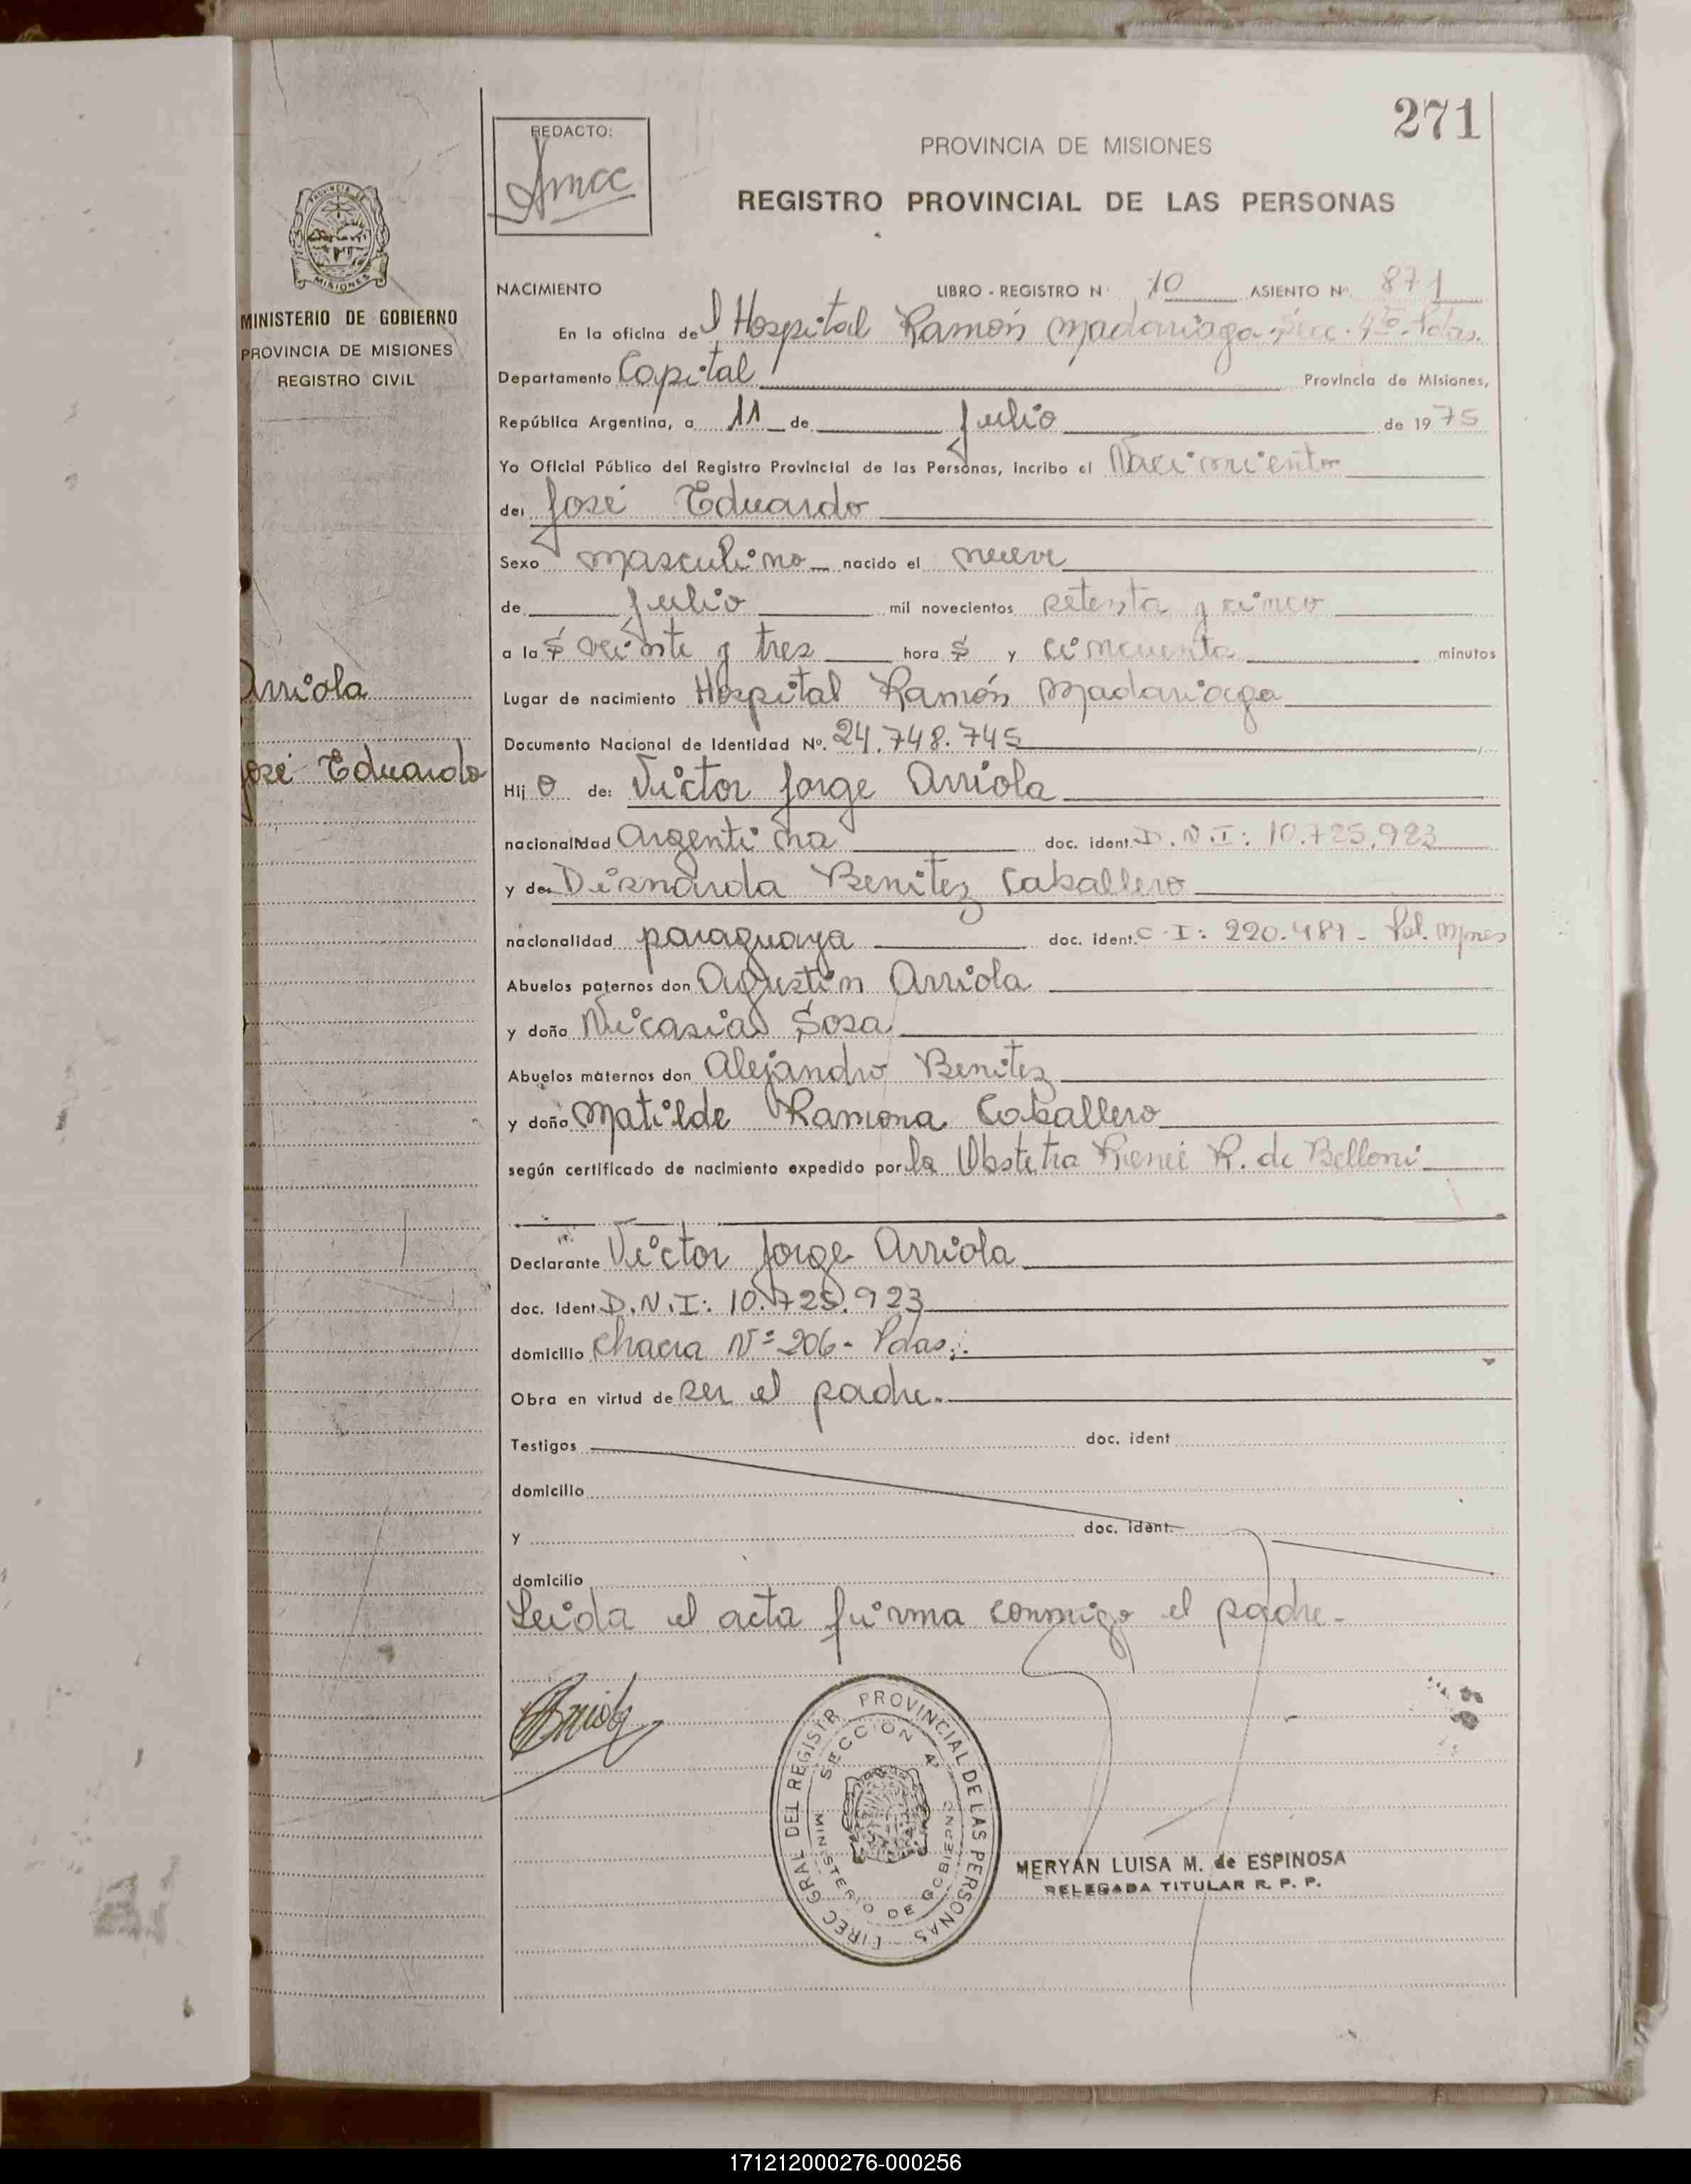 271
REDACTO:
PROVINCIA DE MISIONES
REGISTRO PROVINCIAL DE LAS PERSONAS
PROVINCIA DE
MISIONES
MINISTERIO DE GOBIERNO
PROVINCIA DE MISIONES
REGISTRO CIVIL
Arriola
José Eduardo
NACIMIENTO LIBRO - REGISTRO Nº 10 ASIENTO Nº. 871
En la oficina del Hospital Ramón Madariaga. Secc. 4ta. Pdas.
Departamento Capital Provincia de Misiones,
República Argentina, a 11 de Julio de 1975
Yo Oficial Público del Registro Provincial de las Personas, incribo el Nacimiento
de: José Eduardo
Sexo masculino nacido el nueve
de julio mil novecientos setenta y cinco
a las veinte y tres horas y cincuenta minutos
Lugar de nacimiento Hospital Ramón Madariaga
Documento Nacional de Identidad Nº. 24.748.745
Hijo de: Victor Jorge Arriola
nacionalidad Argentina doc. ident. D.N.I: 10.725.923
y de: Benitez Caballero
nacionalidad paraguaya doc. ident. C.I: 220.481 - Pol. Mnes
Abuelos paternos don Agustín Arriola
y doña Nicasia Sosa
Abuelos maternos don Alejandro Benitez
y doña Matilde Ramona Caballero
según certificado de nacimiento expedido por la Obstetra Reneé R. de Belloni
Declarante Victor Jorge Arriola
doc. Ident D.N.I: 10.725.923
domicilio Chacra Nº 206 - Pdas.
Obra en virtud de ser el padre.
Testigos doc. ident
domicilio
y doc. ident.
domicilio
Leida el acta firma conmigo el padre.
Arriola
DIREC GRAL DEL REGISTR PROVINCIAL DE LAS PERSONAS
SECCION 4ª
MINISTERIO DE GOBIERNO
MERYAN LUISA M. de ESPINOSA
DELEGADA TITULAR R. P. P.
171212000276-000256